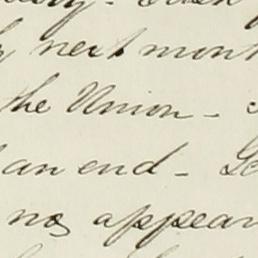 next month
the Union -
an end -
no appear